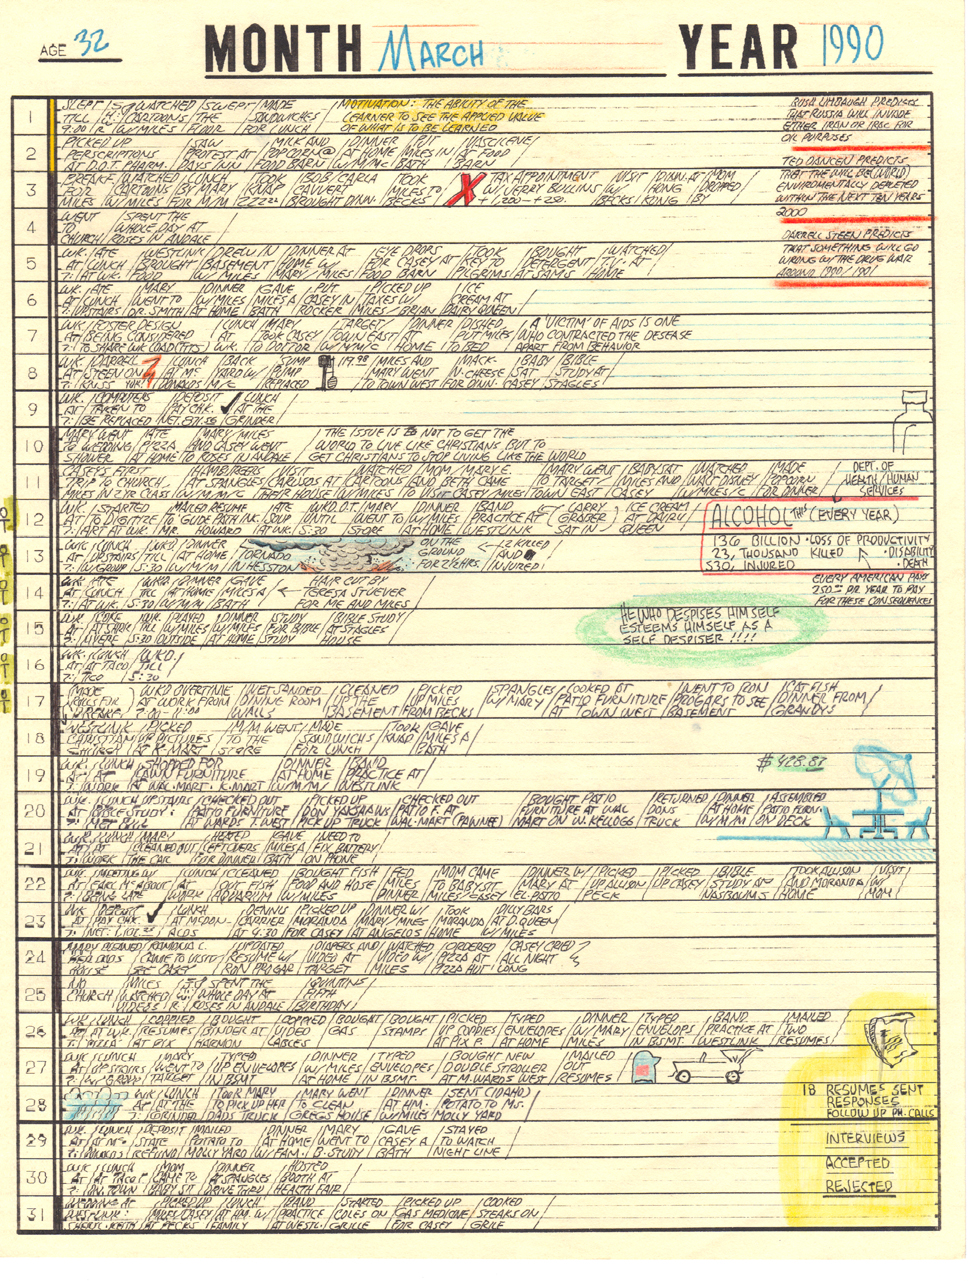 AGE 32
MONTH March
YEAR 1990
1
SLEPT WATCHED SWEPT MADE MOTIVATION: THE ABILITY OF THE
TILL CARTOONS THE SANDWICHES LEARNER TO SEE THE APPLIED VALUE
9:00 W/MILES FLOOR FOR LUNCH OF WHAT IS TO BE LEARNED
RUSH LIMBAUGH PREDICTS
THAT RUSSIA WILL INVADE
EITHER IRAN OR IRAC FOR
OIL PURPOSES
2
PICKED UP SAW MILK AND DINNER PUT VASCILENE
PERSCRIPTIONS PROTEST AT POPCORN @ AT HOME MILES IN AT FOOD
AT D.O.T. PHARM. DAYS INN FOOD BARN W/M/M BATH BARN
TED DANCEN PREDICTS
THAT WE WILL BE (WORLD)
ENVIROMENTALLY DEPLETED
WITHIN THE NEXT TEN YEARS
2000
3
WATCHED LUNCH TOOK BOB CARLA TOOK X TAX APPOINTMENT VISIT DINN. AT MOM
FOR CARTOONS BY MARY KNAP CAVVERT MILES TO W/JERRY BULLINS W/ HONG DROPPED
MILES W/MILES FOR M/M ZZZZZ BROUGHT DINN. BECKS +1,200 - +250. BECKS KONG BY
4
WENT SPENT THE
TO WHOLE DAY AT
CHURCH ROSES IN ANDALE
DARRELL STEEN PREDICTS
THAT SOMETHING WILL GO
WRONG W/THE DRUG WAR
AROUND 1990/1991
5
WK. ATE WESTLINK DREW IN DINNER AT EYE DROPS TOOK BOUGHT WATCHED
AT LUNCH BROUGHT BASEMENT HOME W/ FOR CASEY AT KEY TO DETERGENT T.V. AT
7: AT WK. W/MILES MARY/MILES FOOD BARN PILGRIMS AT SAMS HOME
6
WK. ATE MARY DINNER GAVE PUT PICKED UP ICE
AT LUNCH WENT TO W/MILES MILES A CASEY IN TAXES W/ CREAM AT
7: UPSTAIRS DR. SMITH AT HOME BATH ROCKER MILES/BRIAN DAIRY QUEEN
7
WK. POSTER DESIGN LUNCH MARY TARGET DINNER DISHED A 'VICTIM' OF AIDS IS ONE
AT BEING CONSIDERED AT TOOK CASEY TOWN EAST AT PUT MILES WHO CONTRACTED THE DESEASE
7: WK. TO DOCTOR W/M/M/C HOME TO BED APART FROM BEHAVIOR
8
WK. DARRELL LUNCH BACK SUMP 19.98 MILES AND MACK- BABY BIBLE
AT STEEN ON AT Mc YARD W/ PUMP MARY WENT N-CHEESE SAT STUDY AT
7: DONALDS M/C REPLACED TO TOWN WEST FOR DINN. CASEY STAGLES
9
WK. COMPUTERS DEPOSIT LUNCH
AT TAKEN TO PAY CHK. AT THE
7: BE REPLACED NET. GRINDER
10
MARY WENT ATE MARY/MILES THE ISSUE IS NOT TO GET THE
TO WEDDING PIZZA AND CASEY WENT WORLD TO LIVE LIKE CHRISTIANS, BUT TO
SHOWER AT HOME TO ROSES IN ANDALE GET CHRISTIANS TO STOP LIVING LIKE THE WORLD
11
CASEYS FIRST HAMBERGERS VISIT WATCHED MOM/MARY E. MARY WENT BABYSAT WATCHED MADE
TRIP TO CHURCH. AT SPANGLES CARUSOS AT CARTOONS AND BETH CAME TO TARGET/ MILES AND WALT DISNEY POPCORN
MILES IN 2 YR CLASS W/M/M/C THEIR HOUSE W/MILES TO VISIT CASEY/MILES TOWN EAST CASEY W/MILES/C FOR DINNER
DEPT. OF
HEALTH/HUMAN
SERVICES
12
WK. STARTED MAILED RESUME ATE WK.O.T. MARY DINNER BAND LARRY ICE CREAM
AT TO DIGITIZE TO GUIDE POSTS IN LUNCH UNTIL WENT TO W/MILES PRACTICE AT (GRABER) AT DAIRY
7: ART AT WK. MR. HOWARD AT WK. 5:30 STORE AT HOME WESTLINK SAT IN QUEEN
ALCOHOL THIS (EVERY YEAR)
136 BILLION • LOSS OF PRODUCTIVITY
23, THOUSAND KILLED • DISABILITY
530, INJURED • DEATH
13
WK. LUNCH WKD. DINNER TORNADO ON THE 12 KILLED
AT UPSTAIRS TILL AT HOME IN GROUND AND
7: W/GROUP 5:30 W/M/M HESSTON FOR 2½ HRS INJURED!
14
WK. ATE WKD. DINNER GAVE HAIR CUT BY
AT LUNCH TILL AT HOME MILES A TERESA STUEVER
7: AT WK. 5:30 W/M/M BATH FOR ME AND MILES
EVERY AMERICAN PAYS
250.00 PR YEAR TO PAY
FOR THESE CONSEQUENCES
15
WK. WK. PLAYED DINNER STUDY BIBLE STUDY
AT TILL W/MILES W/MILES FOR BIBLE AT STAGLES
7: 5:30 OUTSIDE AT HOME STUDY HOUSE
HE WHO DESPISES HIMSELF
ESTEEMS HIMSELF AS A
SELF DESPISER !!!!
16
WK. LUNCH WKD.
AT AT TACO TILL
7: TICO 5:30
17
MADE WKD OVERTIME WET SANDED CLEANED PICKED SPANGLES LOOKED AT WENT TO RON CAT FISH
AT WORK FROM DINING ROOM UP THE UP MILES W/MARY PATIO FURNITURE PROGARS TO SEE DINNER FROM
7:00-11:00 WALLS BASEMENT FROM BECKS AT TOWN WEST BASEMENT GRANDYS
18
WESTLINK PICKED M/M WENT MADE TOOK GAVE
CHRISTIAN UP PICTURES TO THE SANDWICHS KNAP MILES A
CHURCH AT K-MART STORE FOR LUNCH BATH
19
WK. LUNCH SHOPPED FOR DINNER BAND
AT AT LAWN FURNITURE AT HOME PRACTICE AT
7: WORK AT WAL-MART/K-MART W/M/M WESTLINK
$428.87
20
WK. LUNCH UPSTAIRS CHECKED OUT PICKED UP CHECKED OUT BOUGHT PATIO RETURNED DINNER ASSEMBLED
AT BIBLE STUDY PATIO FURNITURE DON HARMANS PATIO F. AT FURNITURE AT WAL DONS AT HOME PATIO FURN.
7: AT WARDS T. WEST PICK UP TRUCK WAL-MART (PAWNEE) MART ON W. KELLOGG TRUCK W/M/M ON DECK
21
WK. LUNCH MARY HEATED GAVE NEED TO
AT AT CLEANED OUT LEFTOVERS MILES A FIX BATTERY
7: WORK THE CAR FOR DINNER BATH ON PHONE
22
WK. MEETING W/ LUNCH CLEANED BOUGHT FISH FED MOM CAME DINNER W/ PICKED PICKED BIBLE TOOK ALLISON VISIT
AT EARL H. ABOUT AT OUT FISH FOOD AND HOSE MILES TO BABYSIT MARY AT UP ALLISON UP CASEY STUDY AT AND MORANDA W/
7: BEING LATE WORK AQUARIUM W/MILES DINNER MILES/CASEY EL-PATIO PECK NASIBOUMS HOME MOM
23
WK. DEPOSIT LUNCH DENNY PICKED UP DINNER W/ TOOK DILLY BARS
AT PAY CHK. AT McDON- CARRIER MORANDA MARY/MILES MIRANDA AT D. QUEEN
7: NET: ALDS AT 4:30 FOR CASEY AT ANGELOS HOME W/MILES
24
MARY CLEANED RAMONA C. UPDATED DIAPERS AND WATCHED ORDERED CASEY CRIED
HER DADS CAME TO VISIT/ RESUME W/ VIDEO AT VIDEO W/ PIZZA AT ALL NIGHT
HOUSE SEE CASEY RON PROGAR TARGET MILES PIZZA HUT LONG
25
NO MILES SPENT THE QUINTINS
CHURCH WATCHED WHOLE DAY AT FIFTH
VIDEOS ROSES IN ANDALE BIRTHDAY
26
WK. LUNCH COPPIED BOUGHT COPPIED BOUGHT BOUGHT PICKED TYPED DINNER TYPED BAND MAILED
AT AT WK. RESUMES BINDER AT VIDEO GAS STAMPS UP COPPIES ENVELOPES W/MARY ENVELOPS PRACTICE AT TWO
7: PIZZA AT PIX HARMON LABCES AT PIX P. AT HOME MILES IN BSMT. WESTLINK RESUMES
27
WK. LUNCH MARY TYPED DINNER TYPED BOUGHT NEW MAILED
AT UP STAIRS WENT TO UP ENVELOPES W/MILES ENVELOPES DOUBLE STROLLER OUT
7: W/GROUP TARGET IN BSMT AT HOME IN BSMT. AT M. WARDS WEST RESUMES
18 RESUMES SENT
RESPONSES
FOLLOW UP PH. CALLS
28
WK. LUNCH TOOK MARY MARY WENT DINNER SENT (IDAHO)
AT AT THE TO PICK UP HER TO CLEAN AT HM. POTATO TO MS.
7: DADS TRUCK GREGS HOUSE W/MILES MOLLY YARD
29
WK. LUNCH DEPOSIT MAILED DINNER MARY GAVE STAYED
AT AT STATE POTATO TO AT HOME WENT TO CASEY A TO WATCH
7: REFUND MOLLY YARD W/FAM. B. STUDY BATH NIGHT LINE
INTERVIEWS
ACCEPTED
REJECTED
30
WK. LUNCH MOM DINNER HOSTED
AT AT TACO CAME TO AT SPANGLES BOOTH AT
7: BABY SIT DRIVE THRU HEALTH FAIR
31
WEDDING AT PICKED UP LUNCH BAND STARTED PICKED UP COOKED
MILES/CASEY AT HM. W/ PRACTICE COLES ON GAS MEDICINE STEAKS ON
AT BECKS FAMILY AT WESTL. GRILLE FOR CASEY GRILE